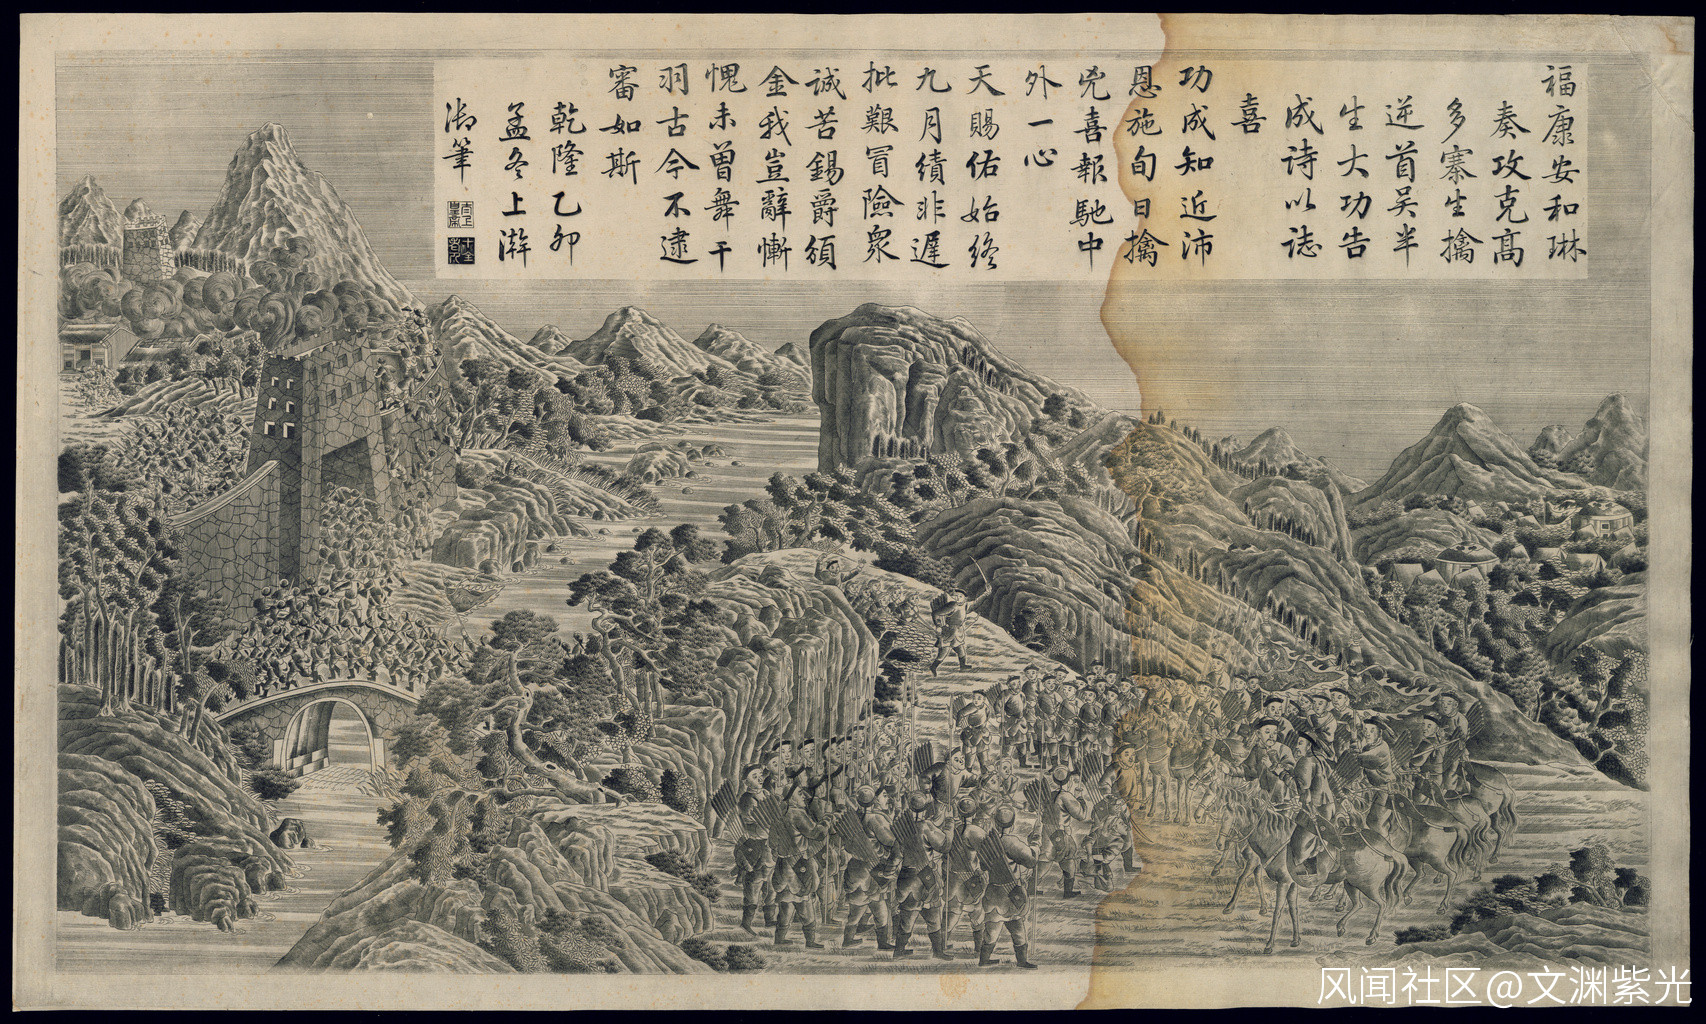 福康安和琳
奏攻克髙
多寨生擒
逆首吴半
生大功告
成詩以誌
喜
功成知近沛
恩施旬日擒
兇喜報馳中
外一心
天賜佑始終
九月績非遲
批艱冒險衆
誠苦錫爵頒
金我豈辭慚
愧未曾舞干
羽古今不逮
審如斯
乾隆乙卯
孟冬上澣
御筆
风闻社区@文渊紫光